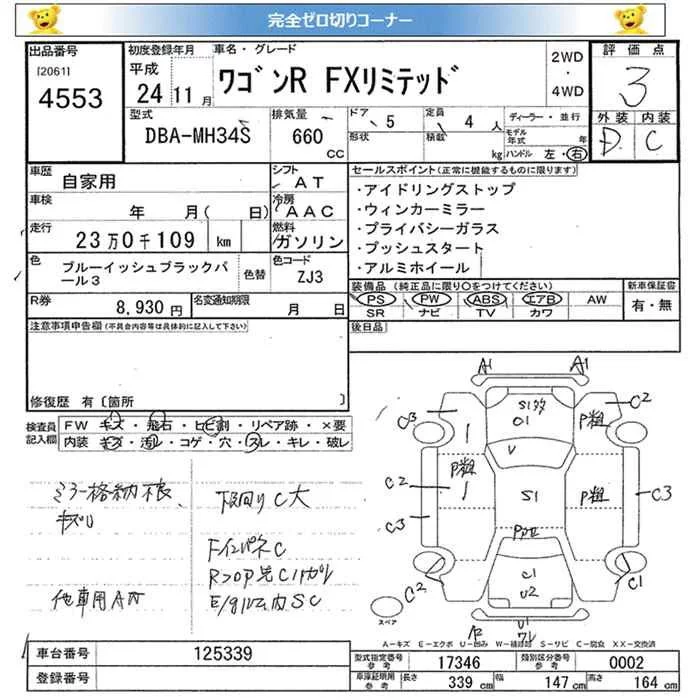 完全ゼロ切りコーナー
出品番号
[2061]
4553
初度登録年月
平成
24 11 月
車名・グレード
ワゴンR FXリミテッド
2WD
・
4WD
評価点
3
外装 内装
D C
型式
DBA-MH34S
排気量
660
CC
ドア 5
形状
定員 4 人
積載 kg
ディーラー・並行
モデル年式 年
ハンドル 左・右
車歴
自家用
シフト
AT
車検
年 月( 日)
冷房
AAC
走行
23万0千109 km
燃料
ガソリン
色
ブルーイッシュブラックパール3
色替
色コード
ZJ3
R券
8,930 円
名変通知期限
月 日
セールスポイント(正常に機能するものに限ります)
・アイドリングストップ
・ウィンカーミラー
・プライバシーガラス
・プッシュスタート
・アルミホイール
装備品(純正品に限り○をつけてください)
PS PW ABS エアB AW
SR ナビ TV カワ
新車保証書
有・無
後日品
注意事項申告欄(不具合内容等は具体的に記入して下さい)
修復歴 有〔箇所 〕
検査員記入欄
FW キズ・飛石・ヒビ割・リペア跡・×要
内装 キズ・汚れ・コゲ・穴・スレ・キレ・破レ
ミラー格納不良
キズリ
他車用AW
下廻りC大
FインパネC
E/gルーム内SC
A1 A1
C3 C2
S1多
01
P粗
V
P粗
C2
C3
S1
P粗
C3
C1
U2
C2 C2
U1
ワレ
スペア
A－キズ E－エクボ U－凹み W－補修跡 S－サビ C－腐食 XX－交換済
車台番号 125339
登録番号
型式指定番号 参考 17346
類別区分番号 参考 0002
車庫証明用 参考 長さ 339 cm 幅 147 cm 高さ 164 cm